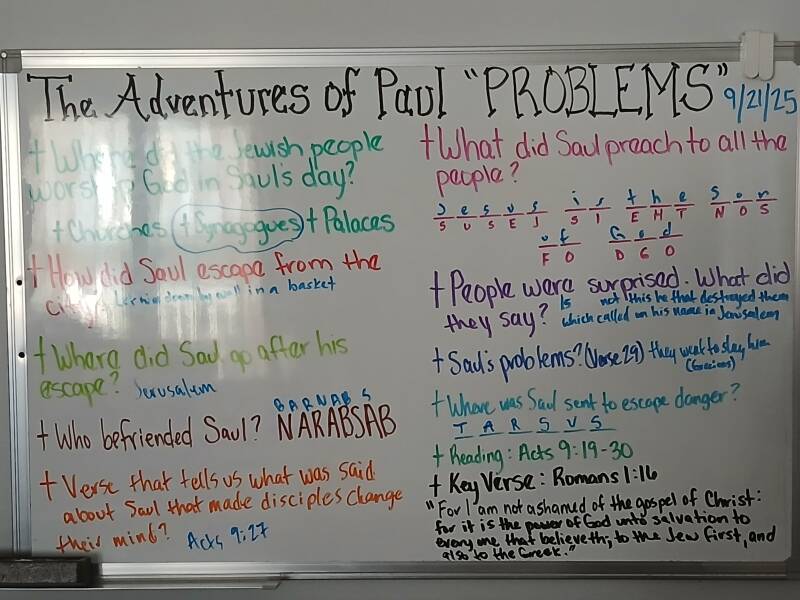 The Adventures of Paul "PROBLEMS" 9/21/25
† Where did the Jewish people
worship God in Saul's day?
† Churches † Synagogues † Palaces
† How did Saul escape from the
city? Let him down by wall in a basket
† Where did Saul go after his
escape? Jerusalem
BARNABS
† Who befriended Saul? NARABSAB
† Verse that tells us what was said
about Saul that made disciples change
their mind? Acts 9:27
† What did Saul preach to all the
people?
Jesus is the Son
SUSEJ SI EHT NOS
of God
FO DGO
† People were surprised. What did
they say? Is not this he that destroyed them
which called on his name in Jerusalem
† Saul's problems? (Verse 29) they went to slay him
(Grecians)
† Where was Saul sent to escape danger?
TARSUS
† Reading: Acts 9:19-30
† Key Verse: Romans 1:16
"For I am not ashamed of the gospel of Christ:
for it is the power of God unto salvation to
every one that believeth; to the Jew first, and
also to the Greek."